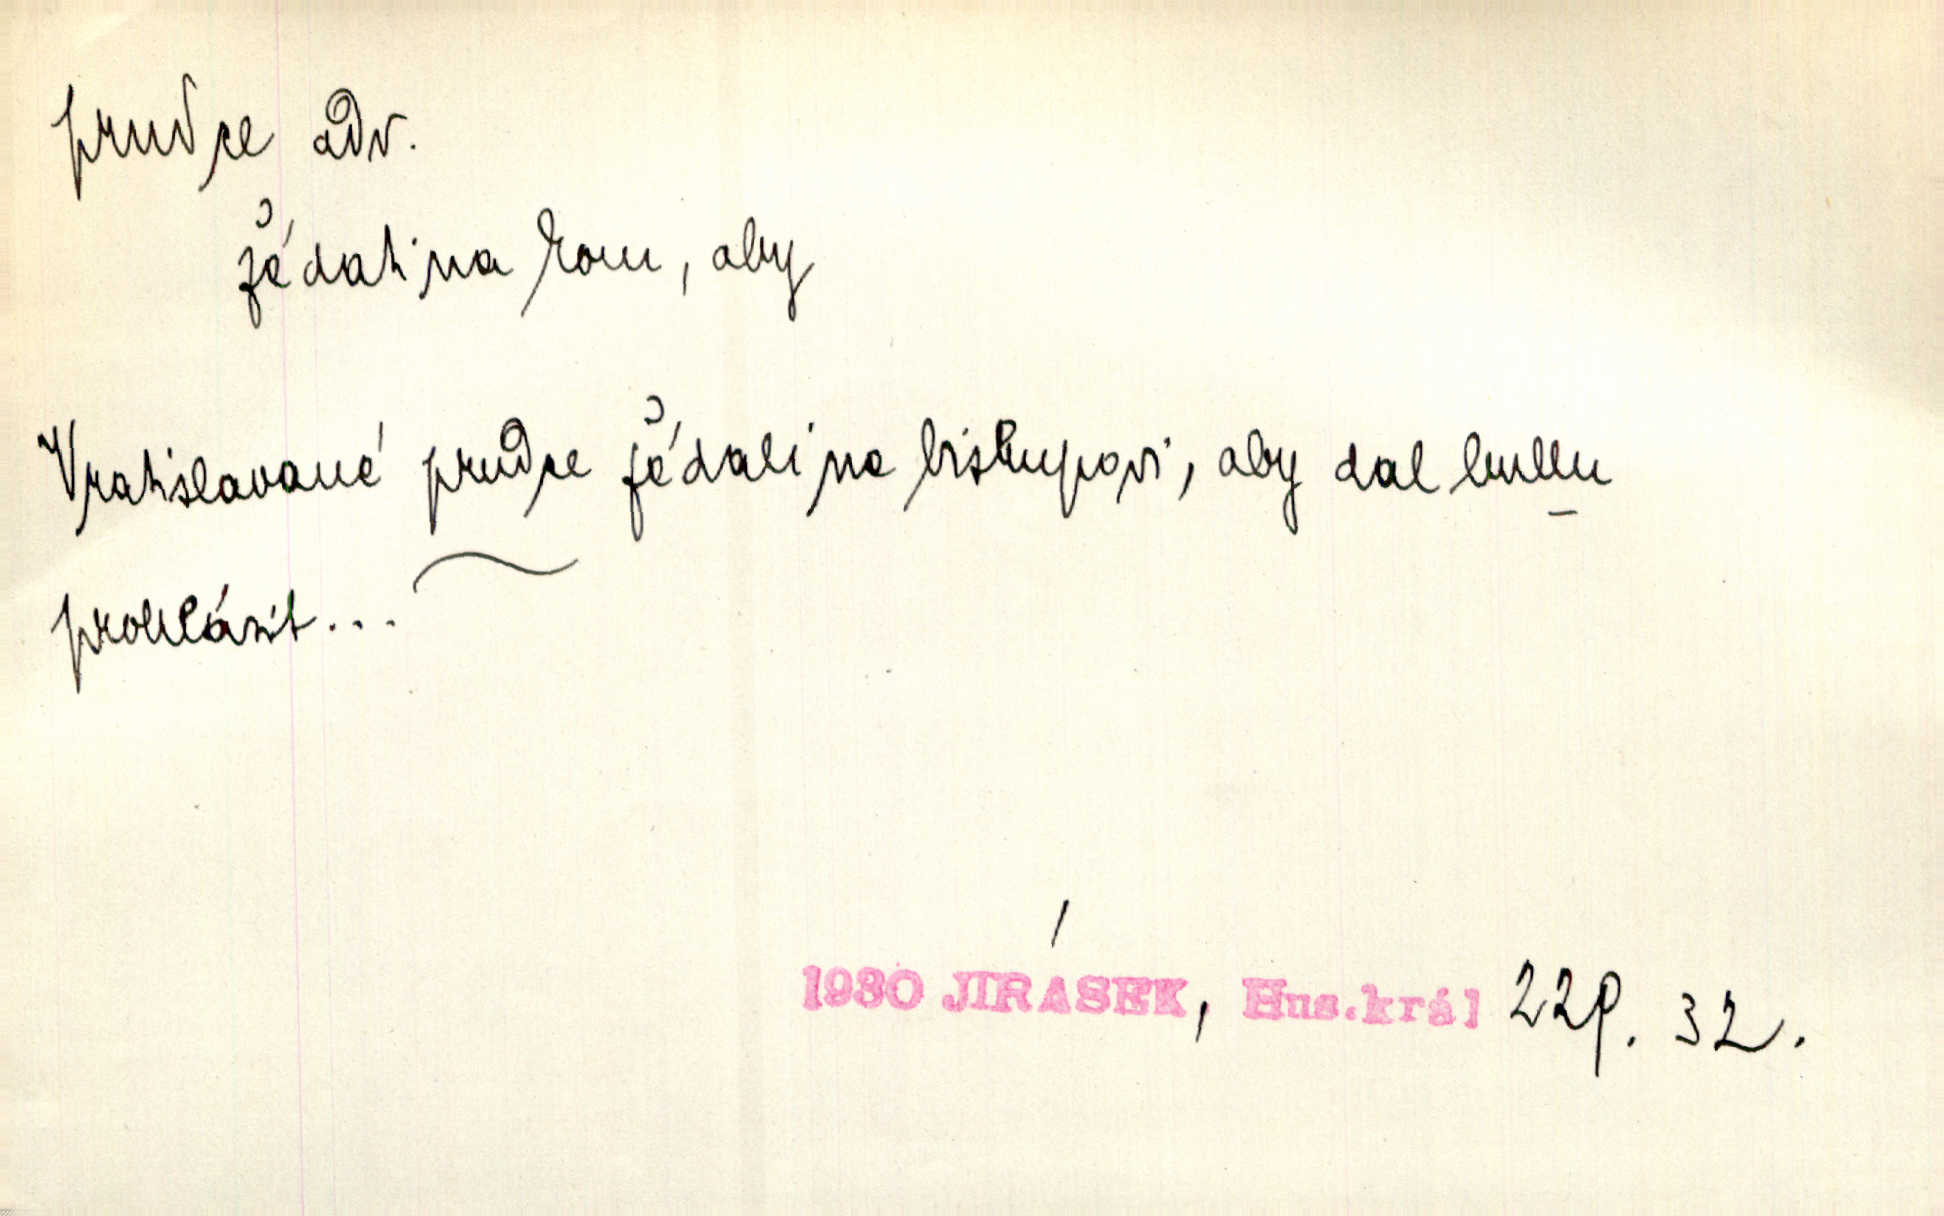 prudce adv.
žádati na kom, aby
Vratislavané prudce žádali na biskupovi, aby dal bullu
prohlásit...
1930 JIRÁSEK, Hus.král 229. 32.